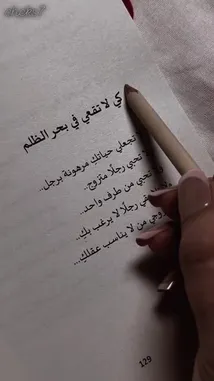 كي لا تقعي في بحر الظلم
تجعلي حياتك مرهونة برجل..
تحبي رجلًا متزوج..
تحبي من طرف واحد..
رجلًا لا يرغب بك..
من لا يناسب عقلك...
129